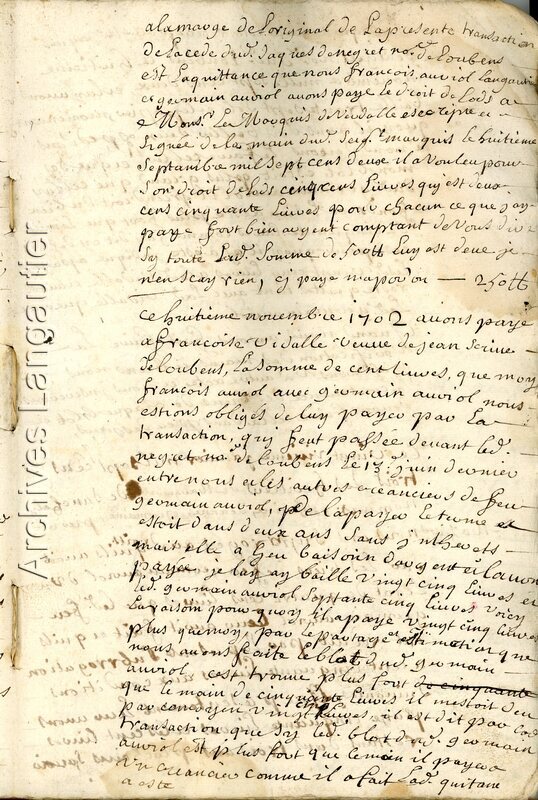 a la marge de loriginal de la presente transaction
de la cede dud. Jaques de negret no.re de Loubens
est laquittance que nous françois auriol Langautier
et germain auriol avons paye le droit de Lods a
Mons.r Le Marquis de Verdalle escripte et
signée de la main dud. seig.r marquis le huitieme
septambre mil sept cens deux il a vouleu pour
son droit de Lods cinq cens Liuves quj est deux
cens cinquante Liuves pour chacun ce que jay
paye fort bien argent comptant de vous dire
sy toute lad. somme de 500 tt luy est deue je
nen scay rien, cj paye ma porõn — 250 tt
ce huitieme novembre 1702 avons paye
a françoise vidalle veuue de jean
de loubens, la somme de cent liuves, que moy
françois auriol avec germain auriol nous
estions obliges de luy payer par la
transaction, quj feut passée devant led.
negret no.re de loubens le 13.e juin dernier
entre nous et les autres creanciers de feu
germain auriol, de la payer le terme
estoit dans deux ans sans jntherets
mais elle a heu baisoin dargent et lavons
payee je luy ay baille vingt cinq Liuves et
led. germain auriol septante cinq Liuves voicy
la raison pour quoy il a paye vingt cinq Liuves
plus que moy, par le partage estimation que
nous avons faite le blot dud. germain
auriol cest trouve plus fort de cinquante
que le mien de cinquante Liuves il mestoit deu
par consequen vingt Liuves, il est dit par lad.
transaction que sy le blot dud. germain
auriol est plus fort que le mien il payera
un creancier comme il a fait lad. quitane
a este
Archives Langautier